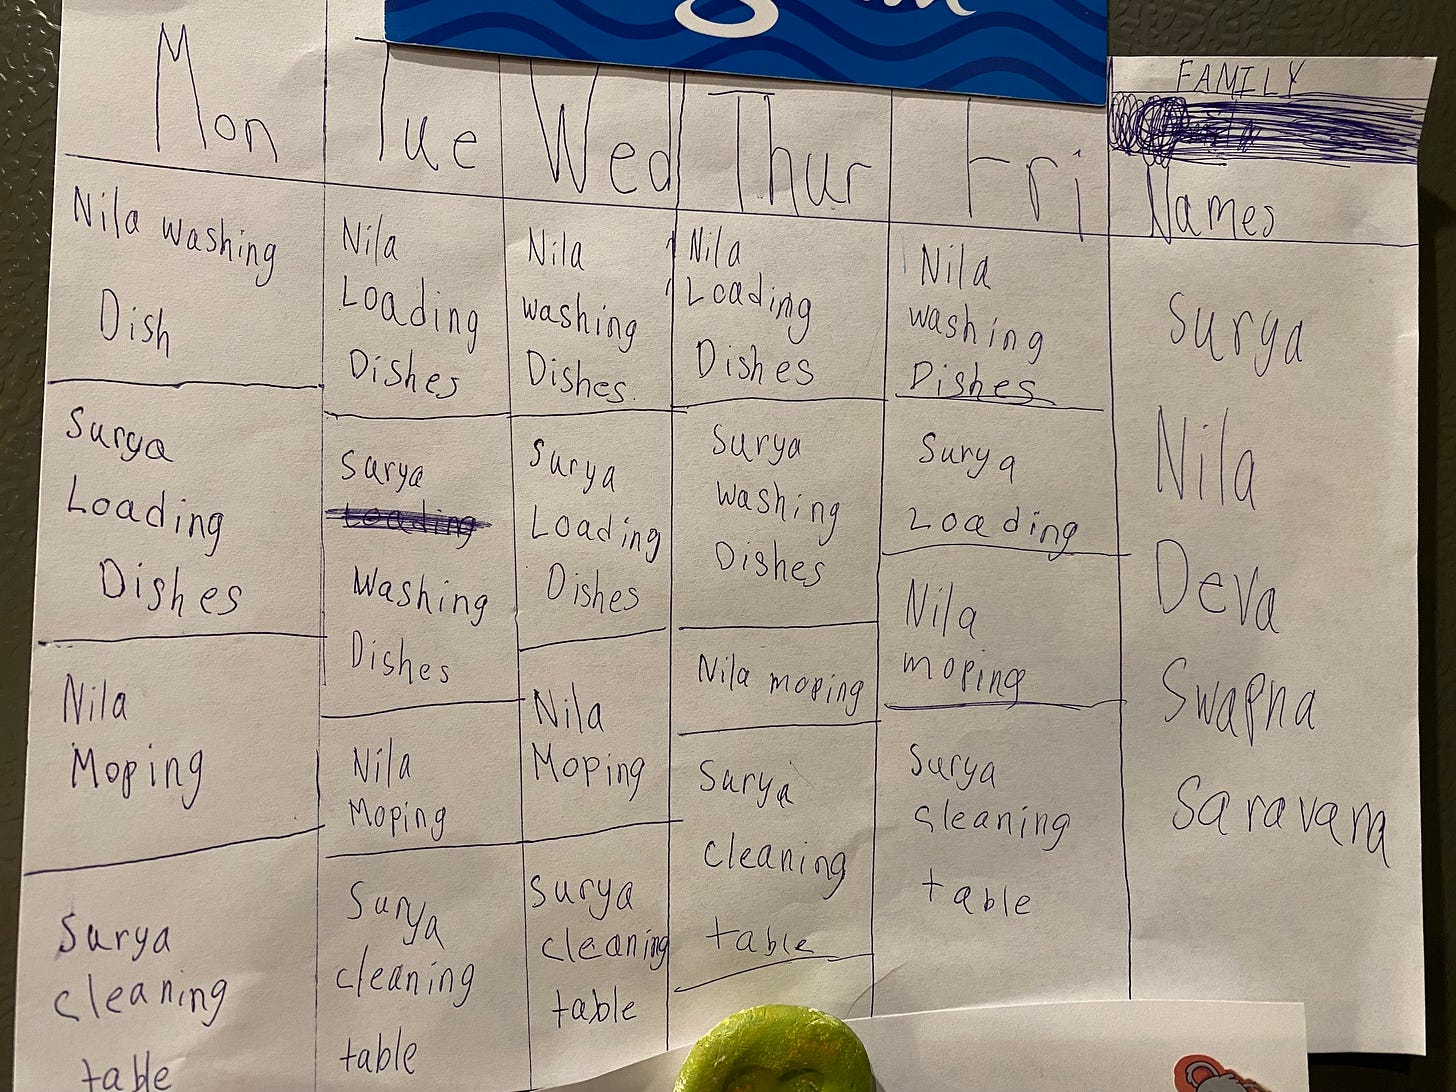 Mon
Nila washing
Dish
Surya
Loading
Dishes
Nila
Moping
Surya
cleaning
table
Tue
Nila
Loading
Dishes
Surya
Loading
Washing
Dishes
Nila
Moping
Surya
cleaning
table
Wed
Nila
washing
Dishes.
Surya
Loading
Dishes
Nila
Moping
Surya
cleaning
table
Thur
Nila
Loading
Dishes
Surya
washing
Dishes
Nila moping
Surya
cleaning
table
Fri
Nila
washing
Dishes
Surya
Loading
Nila
moping
Surya
cleaning
table
FAMILY
Names
Surya
Nila
Deva
Swapna
Saravana